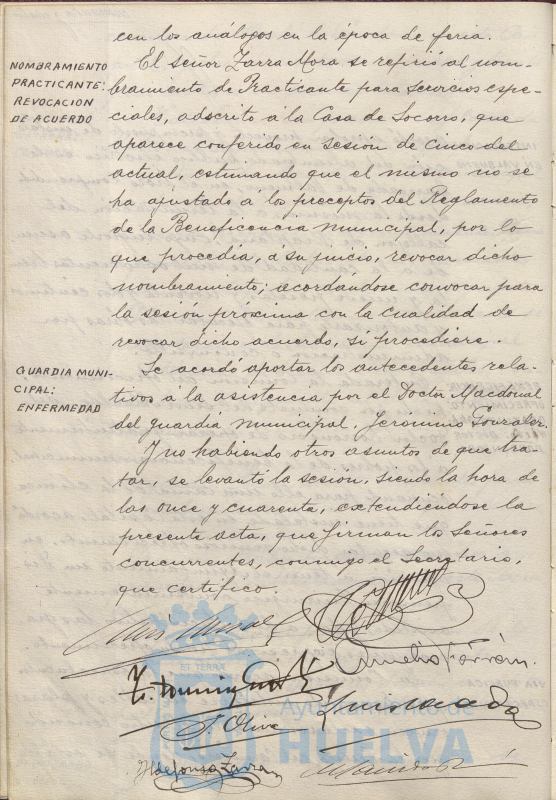 con los análogos en la época de feria.
NOMBRAMIENTO
PRACTICANTE:
REVOCACION
DE ACUERDO
El señor Zarra Mora se refirió al nom-
bramiento de Practicante para servicios espe-
ciales, adscrito á la Casa de Socorro, que
aparece conferido en sesión de cinco del
actual, estimando que el mismo no se
ha ajustado á los preceptos del Reglamento
de la Beneficencia municipal, por lo
que procedía, á su juicio, revocar dicho
nombramiento; acordándose convocar para
la sesión próxima con la cualidad de
revocar dicho acuerdo, si procediere.
GUARDIA MUNI-
CIPAL:
ENFERMEDAD
Se acordó aportar los antecedentes rela-
tivos á la asistencia por el Doctor Macdonal
del guardia municipal, Jerónimo González.
Y no habiendo otros asuntos de que tra-
tar, se levantó la sesión, siendo la hora de
las once y cuarenta, extendiéndose la
presente acta, que firman los Señores
concurrentes, conmigo el Secretario,
que certifico
Aurelio Ferrán.
ET TERRA
J. Oliva
Ayuntamiento de
HUELVA
Yldefonso Zarra